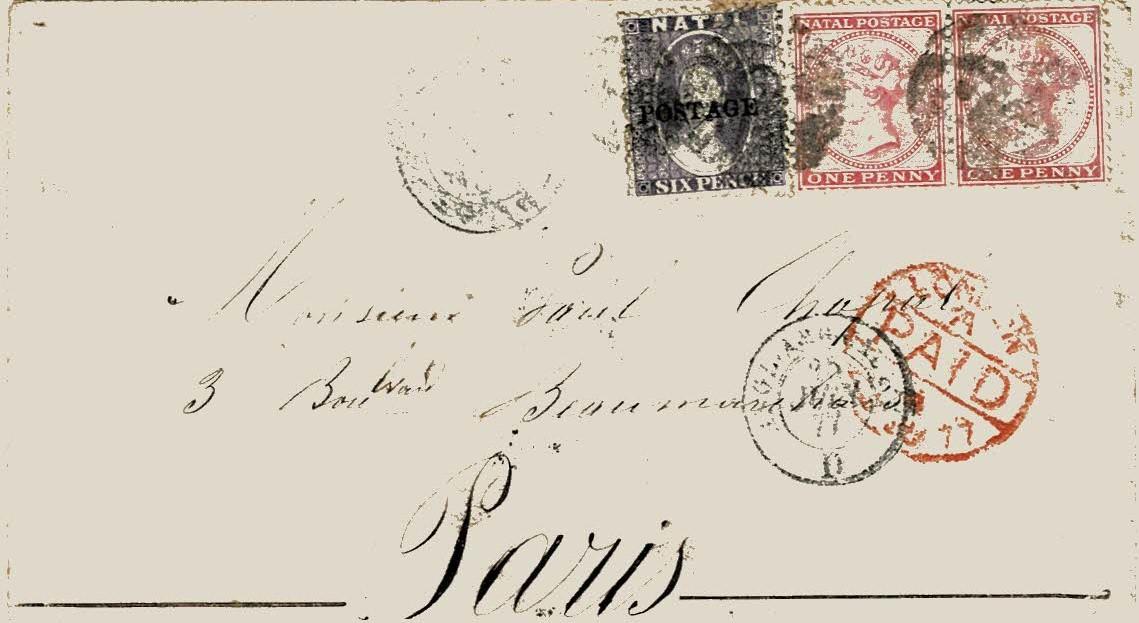 NATAL
POSTAGE
SIX PENCE
NATAL POSTAGE
ONE PENNY
NATAL POSTAGE
ONE PENNY
Monsieur Paul
3 Boulvard Beaumarchais
Paris
LONDON
PAID
77
77
D